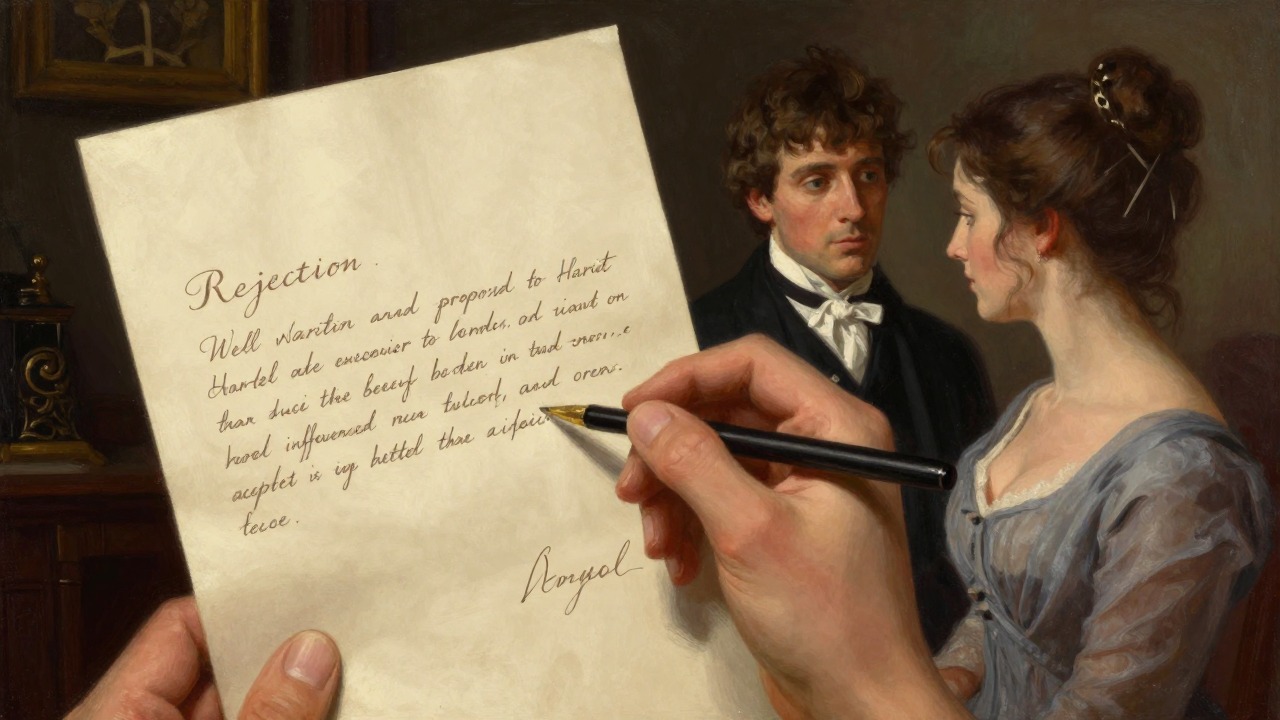 Rejection
Well Waritin annd proposd to Hariet
Hartel ale execovier to londes. od iiant on
than duci the beeuf beden in tred
hood inffuenced nua tulcort, and orens.
acuptet is iqy buttol thae
fecoe.